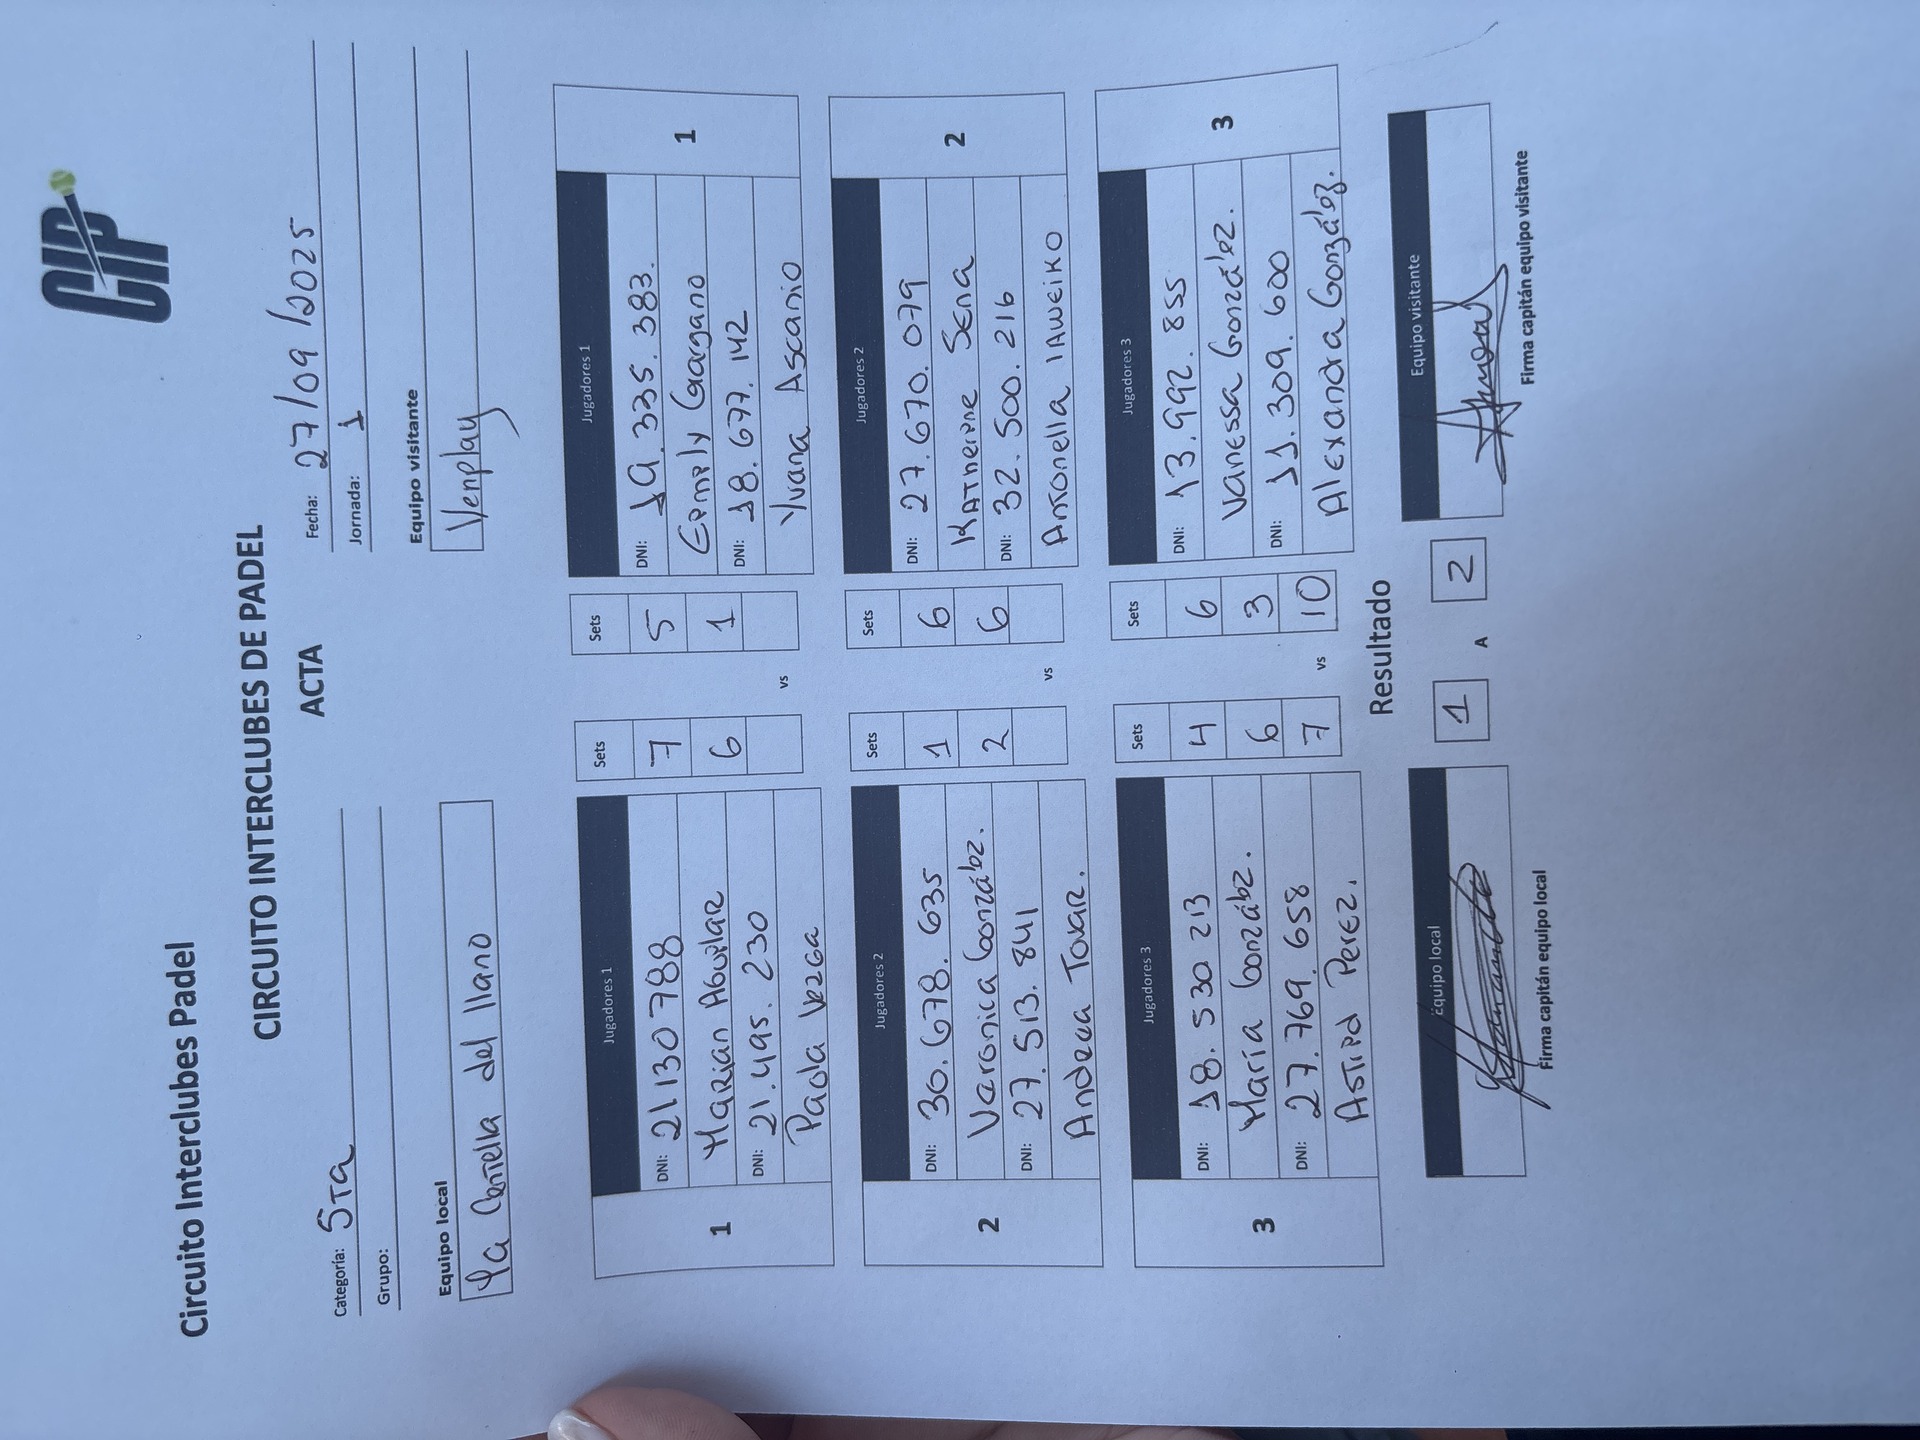 CIP
Circuito Interclubes Padel
CIRCUITO INTERCLUBES DE PADEL
ACTA
Categoría: 5ta Fecha: 27/09/2025
Grupo: Jornada: 1
Equipo local Equipo visitante
La Centella del llano Venplay
Jugadores 1 Sets Sets Jugadores 1
DNI: 21130788 7 5 DNI: 19.335.383.
Marian Aguilar 6 1 Emily Gargano
DNI: 21.495.230 DNI: 18.677.142
Paola vs Yvana Ascanio
1 1
Jugadores 2 Sets Sets Jugadores 2
DNI: 30.678.635 1 6 DNI: 27.670.079
Veronica González. 2 6 Katherine Sena
DNI: 27.513.841 DNI: 32.500.216
Andrea Tovar. vs Antonella
2 2
Jugadores 3 Sets Sets Jugadores 3
DNI: 18.530 213 4 6 DNI: 13.992.855
María González. 6 3 Vanessa González.
DNI: 27.769.658 7 10 DNI: 11.309.600
Astrid Perez. vs Alexandra González.
3 3
Resultado
Equipo local 1 A 2 Equipo visitante
Firma capitán equipo local Firma capitán equipo visitante